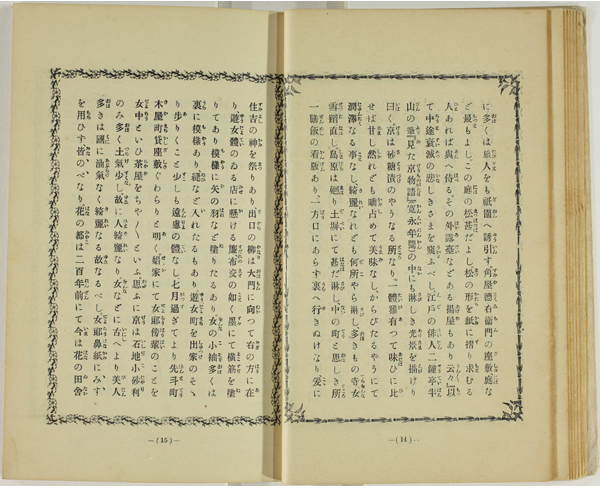 に多くは旅人をも祇園へ誘引す角屋德右衞門の座敷庭な
ど最もよしこの庭の松甚だよし松の形を紙に摺り求むる
人あれば與へ侍るその外露臺などある揚屋もあり云々以
て中途衰滅の悲しきさまを窺ふべし江戸の俳人二鐘亭半
山の筆『見た京物語』寛永年間の中にも淋しき光景を描けり
曰く京は砂糖漬のやうなる所なり、一體雅有つて味ひに比
せば甘し然れども嚙占めて美味なし、からびたるやうにて
潤澤なる事なし綺麗なれども何所やら淋し多きもの寺女
雪踏直し島原は廻り土塀にて甚だ淋し、中の町と思しき所
一膳飯の看板あり、一方口にあらず裏へ行きぬけなり爰に
―(14)―
住吉の神を祭りあり出口の柳は大門に向つて右の方に在
り遊女體のゐる店に懸ける簾布交の如く屋にて橫筋を塗
りてあり模樣に矢の羽など塗りたるあり女の小袖多くは
裏に模樣あり繪など入れたるもあり遊女町を出家のそゝ
り步りくこと少しも遠慮の體なし七月過ぎてより先斗町
木屋町貸座敷ぐわらりと明く娼家にて女郞傍輩のことを
女中といひ茶屋をちや/\といふ思ふに京は石地小砂利
のみ多く土氣少し故に人綺麗なり女などに古へより美人
多きは國に油氣なく綺麗なる故なるべし女郞鼻紙にみす
を用ひす皆のべなり花の都は二百年前にて今は花の田舍
―(15)―